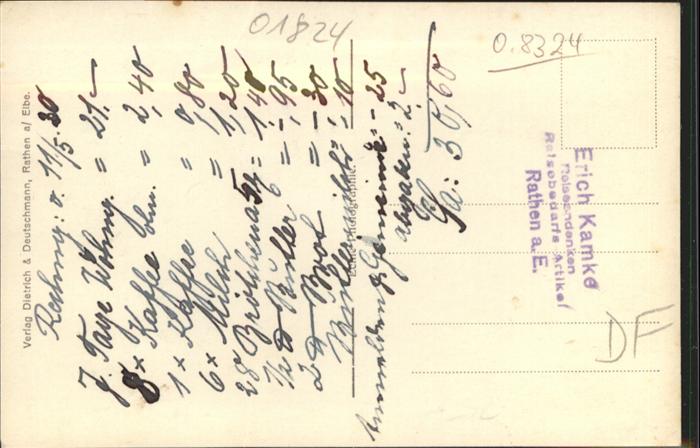 01824
0.8324
Verlag Dietrich & Deutschmann, Rathen a/ Elbe.
Rechng: v. 11/5. 30
7. Tage Wohng. = 21,-
8 x Kaffee = 2,40
1 x Kaffee = ,80
6 x Milch = 1,20
28 Brötchen = 1,40
Butter = -,95
2 Brot = -,30
= -,10
Echte Photographie
Anmeldung Gemeinde = -,25
abgaben = 2,-
Sa: 30,60
Erich Kamke
Reiseandenken
Reisebedarfs Artikel
Rathen a. E.
DF